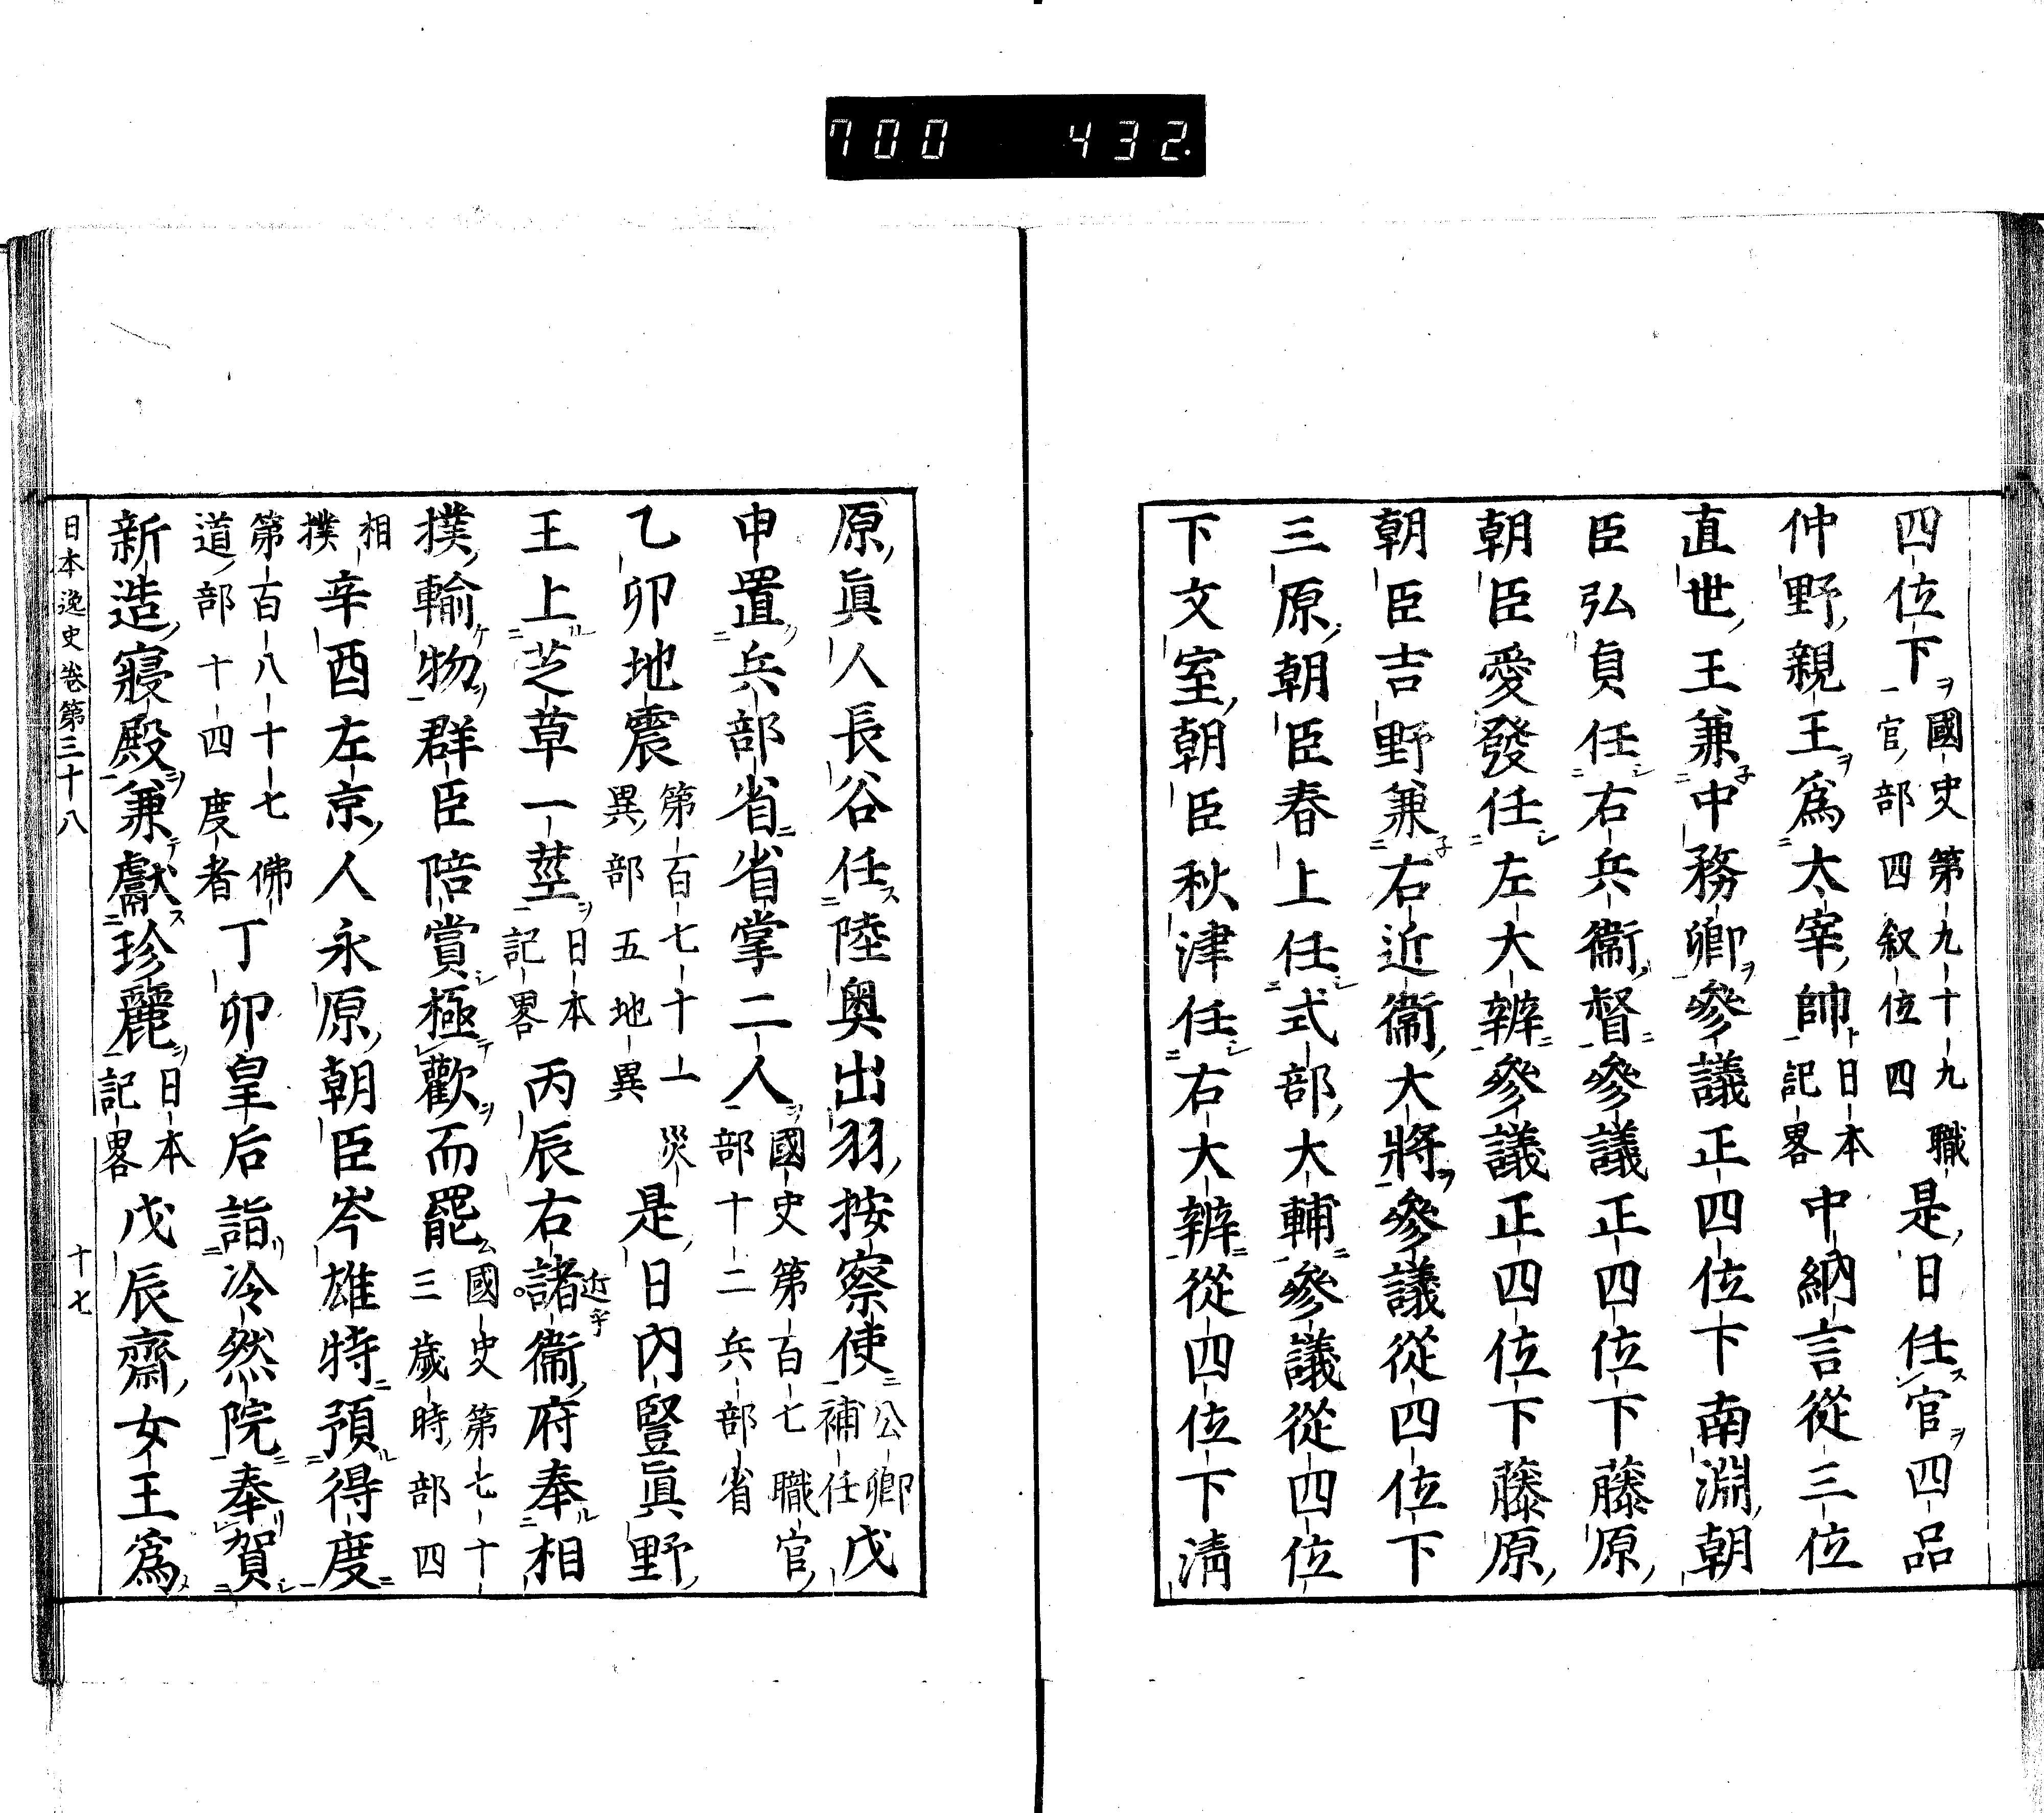 700 432
四位下國史第九十九職
官部四叙位四是日任官四品
仲野親王爲太宰帥日本
記畧中納言從三位
直世王兼中務卿參議正四位下南淵朝
臣弘貞任右兵衞督參議正四位下藤原
朝臣愛發任左大辨參議正四位下藤原
朝臣吉野兼右近衞大將參議從四位下
三原朝臣春上任式部大輔參議從四位
下文室朝臣秋津任右大辨從四位下淸
原眞人長谷任陸奧出羽按察使公卿
補任戊
申置兵部省省掌二人國史第百七職官
部十二兵部省
乙卯地震第百七十一災
異部五地異是日內豎眞野
王上芝草一莖日本
記畧丙辰右諸衞府奉相
近乎
撲輸物群臣陪賞極歡而罷國史第七十
三歲時部四
相
撲辛酉左京人永原朝臣岑雄特預得度
第百八十七佛
道部十四度者丁卯皇后詣冷然院奉賀
新造寢殿兼獻珍麗日本
記畧戊辰齋女王爲
日本逸史卷第三十八 十七